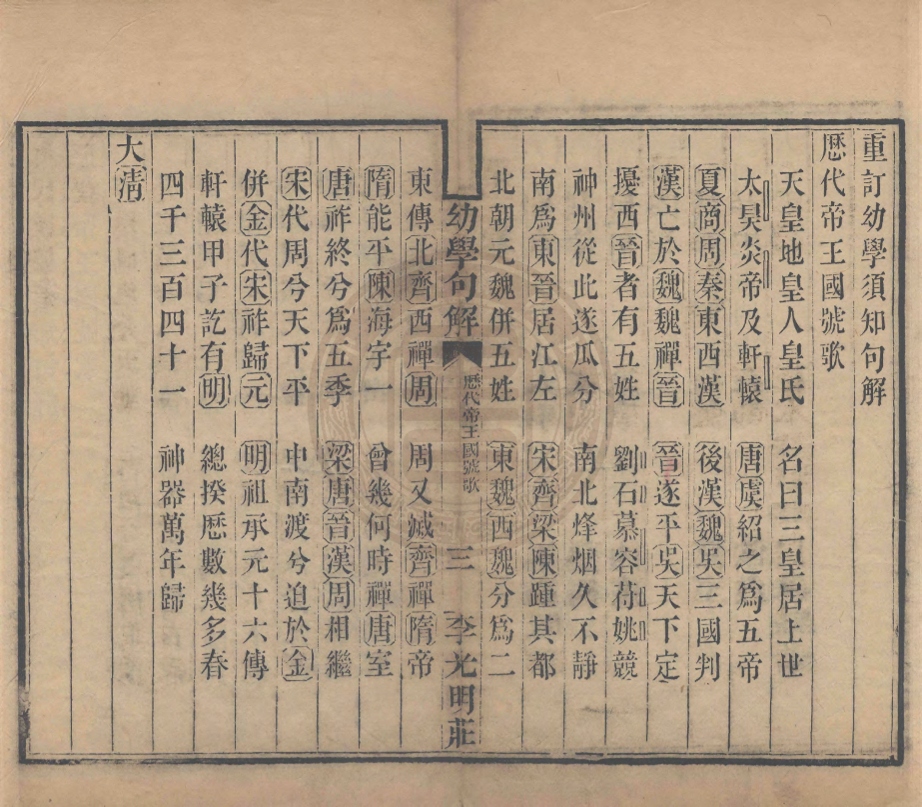 重訂幼學須知句解
歷代帝王國號歌
天皇地皇人皇氏　名曰三皇居上世
太昊炎帝及軒轅　唐虞紹之為五帝
夏商周秦東西漢　後漢魏吳三國判
漢亡於魏魏禪晉　晉遂平吳天下定
擾西晉者有五姓　劉石慕容苻姚競
神州從此遂瓜分　南北烽烟久不靜
南為東晉居江左　宋齊梁陳踵其都
北朝元魏併五姓　東魏西魏分為二
幼學句解　歷代帝王國號歌　三　李光明莊
東傳北齊西禪周　周又滅齊禪隋帝
隋能平陳海宇一　曾幾何時禪唐室
唐祚終兮為五季　梁唐晉漢周相繼
宋代周兮天下平　中南渡兮迫於金
併金代宋祚歸元　明祖承元十六傳
軒轅甲子訖有明　總揆歷數幾多春
四千三百四十一　神器萬年歸
大清